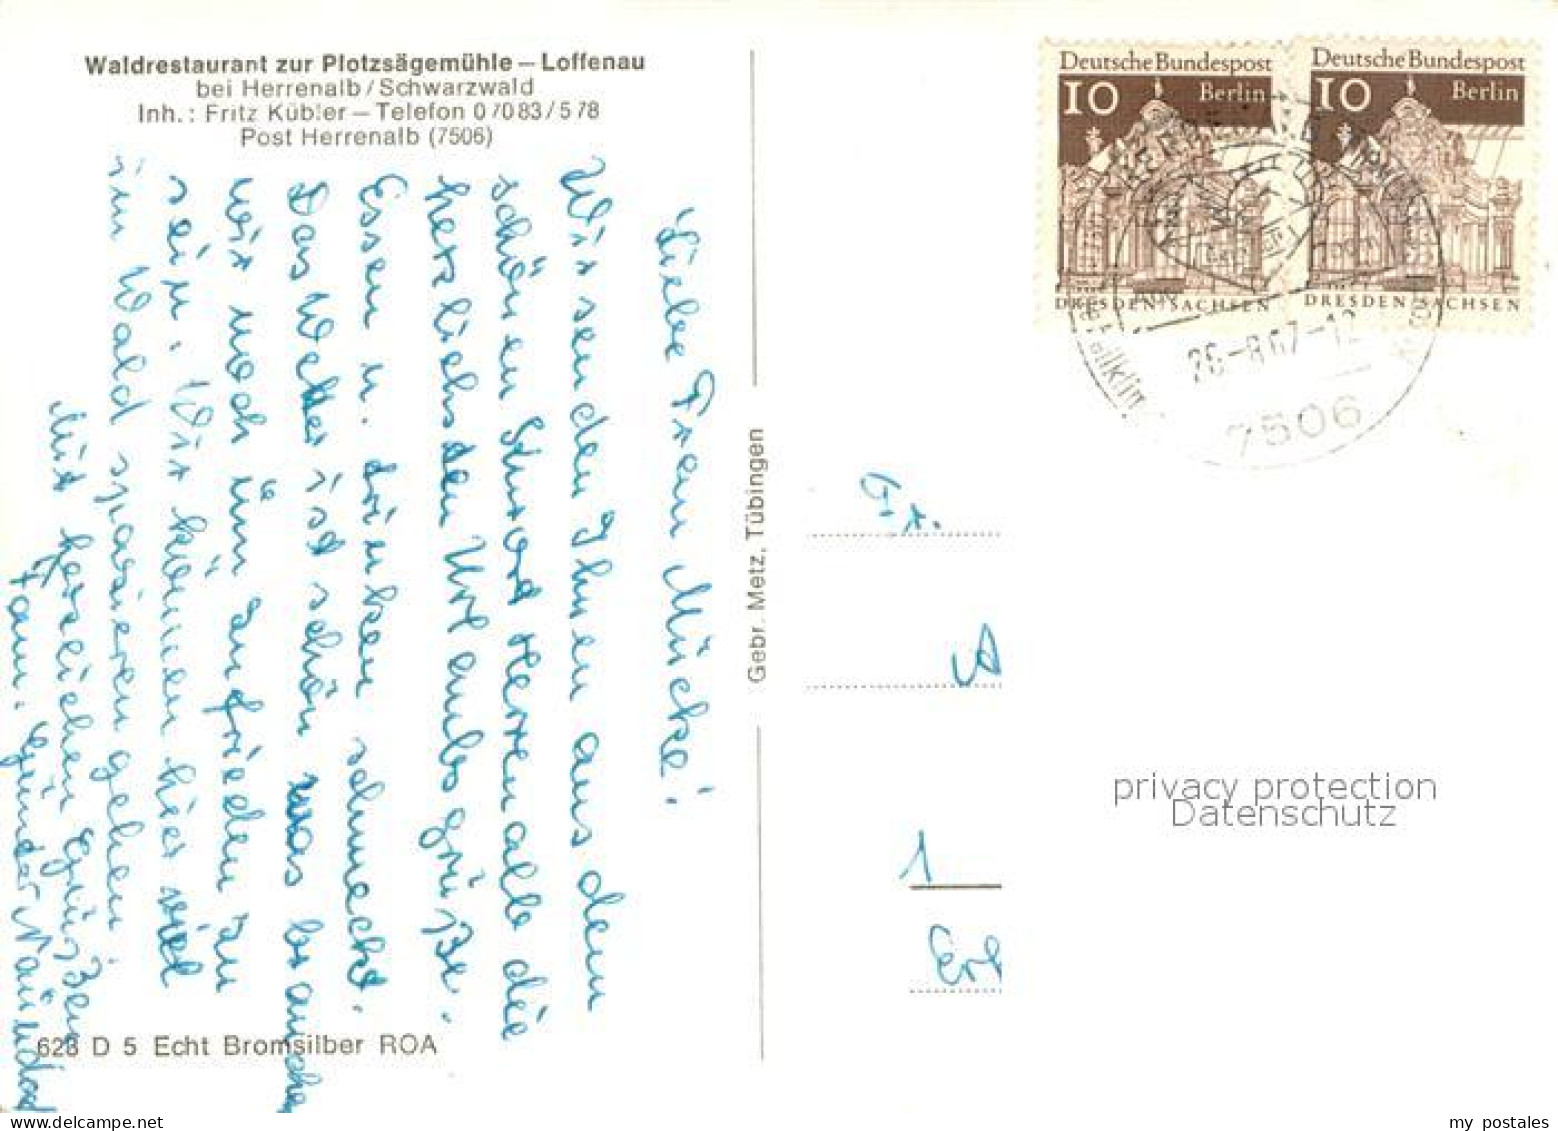 Waldrestaurant zur Plotzsägemühle – Loffenau
bei Herrenalb / Schwarzwald
Inh.: Fritz Kübler – Telefon 07083/578
Post Herrenalb (7506)
Liebe Frau Mücke!
Wir senden Ihnen aus dem
schönen Kurort Herrenalb die
herzlichsten Urlaubsgrüße.
Essen u. trinken schmeckt.
Das Wetter ist schön was brauchen
wir noch um zufrieden zu
sein. Wir können hier viel
im Wald spazieren gehen.
Mit herzlichen Grüßen
Fam. Günter
628 D 5 Echt Bromsilber ROA
Gebr. Metz, Tübingen
Deutsche Bundespost
10 Berlin
DRESDEN/SACHSEN
Deutsche Bundespost
10 Berlin
DRESDEN/SACHSEN
26-8.67-12
7506
Fr.
1
privacy protection
Datenschutz
my postales